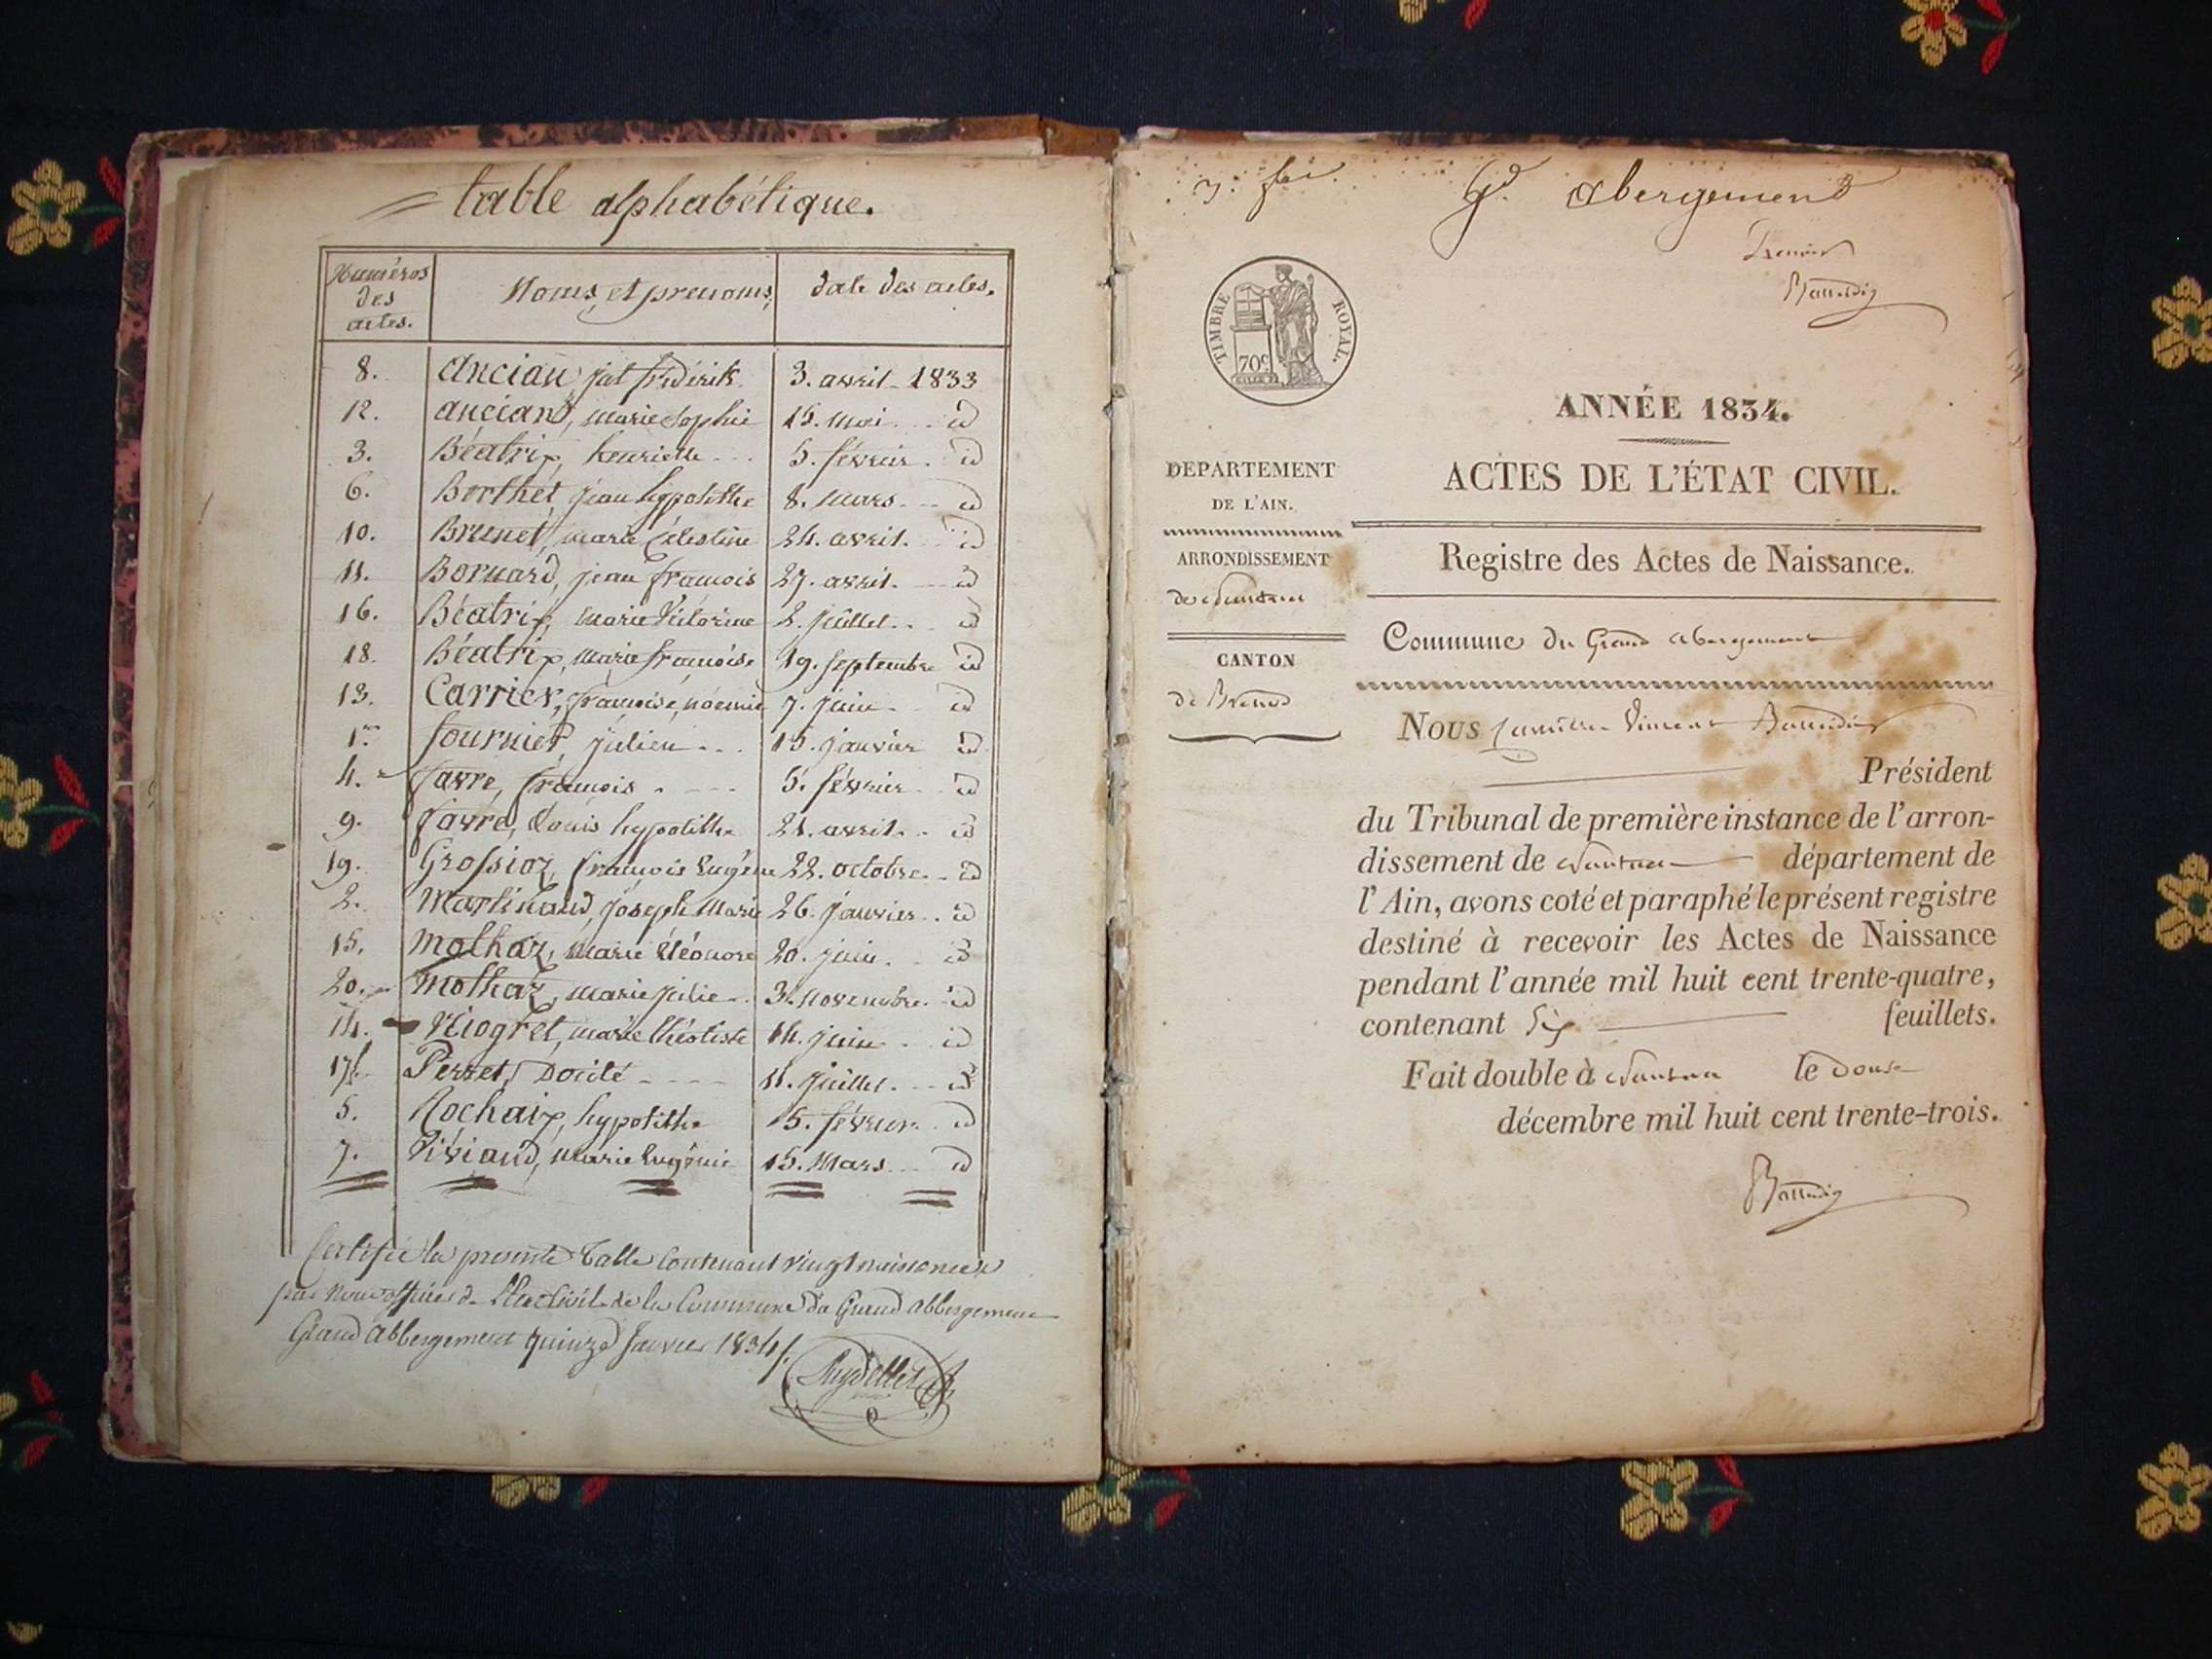 table alphabétique.
Numéros des actes. Noms et prenoms, date des actes.
8. Ancian, jph frédérik 3. avril - 1833
12. ancian, marie Sophie 15. mai id
3. Béatrix, henriette 5. février. id
6. Borthet, jean hypolithe 8. mars id
10. Brunet, marie Célestine 24. avril. id
11. Bornard, jean françois 27. avril. id
16. Béatrix, marie Victorine 2. juillet id
18. Béatrix, marie françoise 19. septembre id
13. Carrier, françoise, noémie 7. juin id
1er fournier, julien 15. janvier id
4. favre, françois 5. février id
9. favre, Louis hypolithe 21. avril id
19. Grossioz, françois Eugène 22. octobre id
2. Martinand, joseph Marie 26. janvier id
15. Molhaz, Marie Eléonore 20. juin id
20. Molhaz, marie julie novembre id
14. Niogret, marie théotiste 14. juin id
17. Perret, Docité 11. juillet id
5. Rochaix, hypolithe 5. février id
7. Viviand, marie Eugénie 15. Mars id
Certifiée la presente Table Contenant vingt naissances
par nous officier de l'Etat Civil de la Commune du Grand abbergement
Grand abbergement quinze Janvier 1834
Gd abergement
TIMBRE ROYAL.
70c
ANNÉE 1834.
ACTES DE L'ÉTAT CIVIL.
DEPARTEMENT
DE L'AIN.
Registre des Actes de Naissance.
ARRONDISSEMENT
de Nantua
Commune du Grand abergement
CANTON
de Brenod
Nous Vincent
Président
du Tribunal de première instance de l'arron-
dissement de Nantua département de
l'Ain, avons coté et paraphé le présent registre
destiné à recevoir les Actes de Naissance
pendant l'année mil huit cent trente-quatre,
contenant Six feuillets.
Fait double à Nantua le douze
décembre mil huit cent trente-trois.